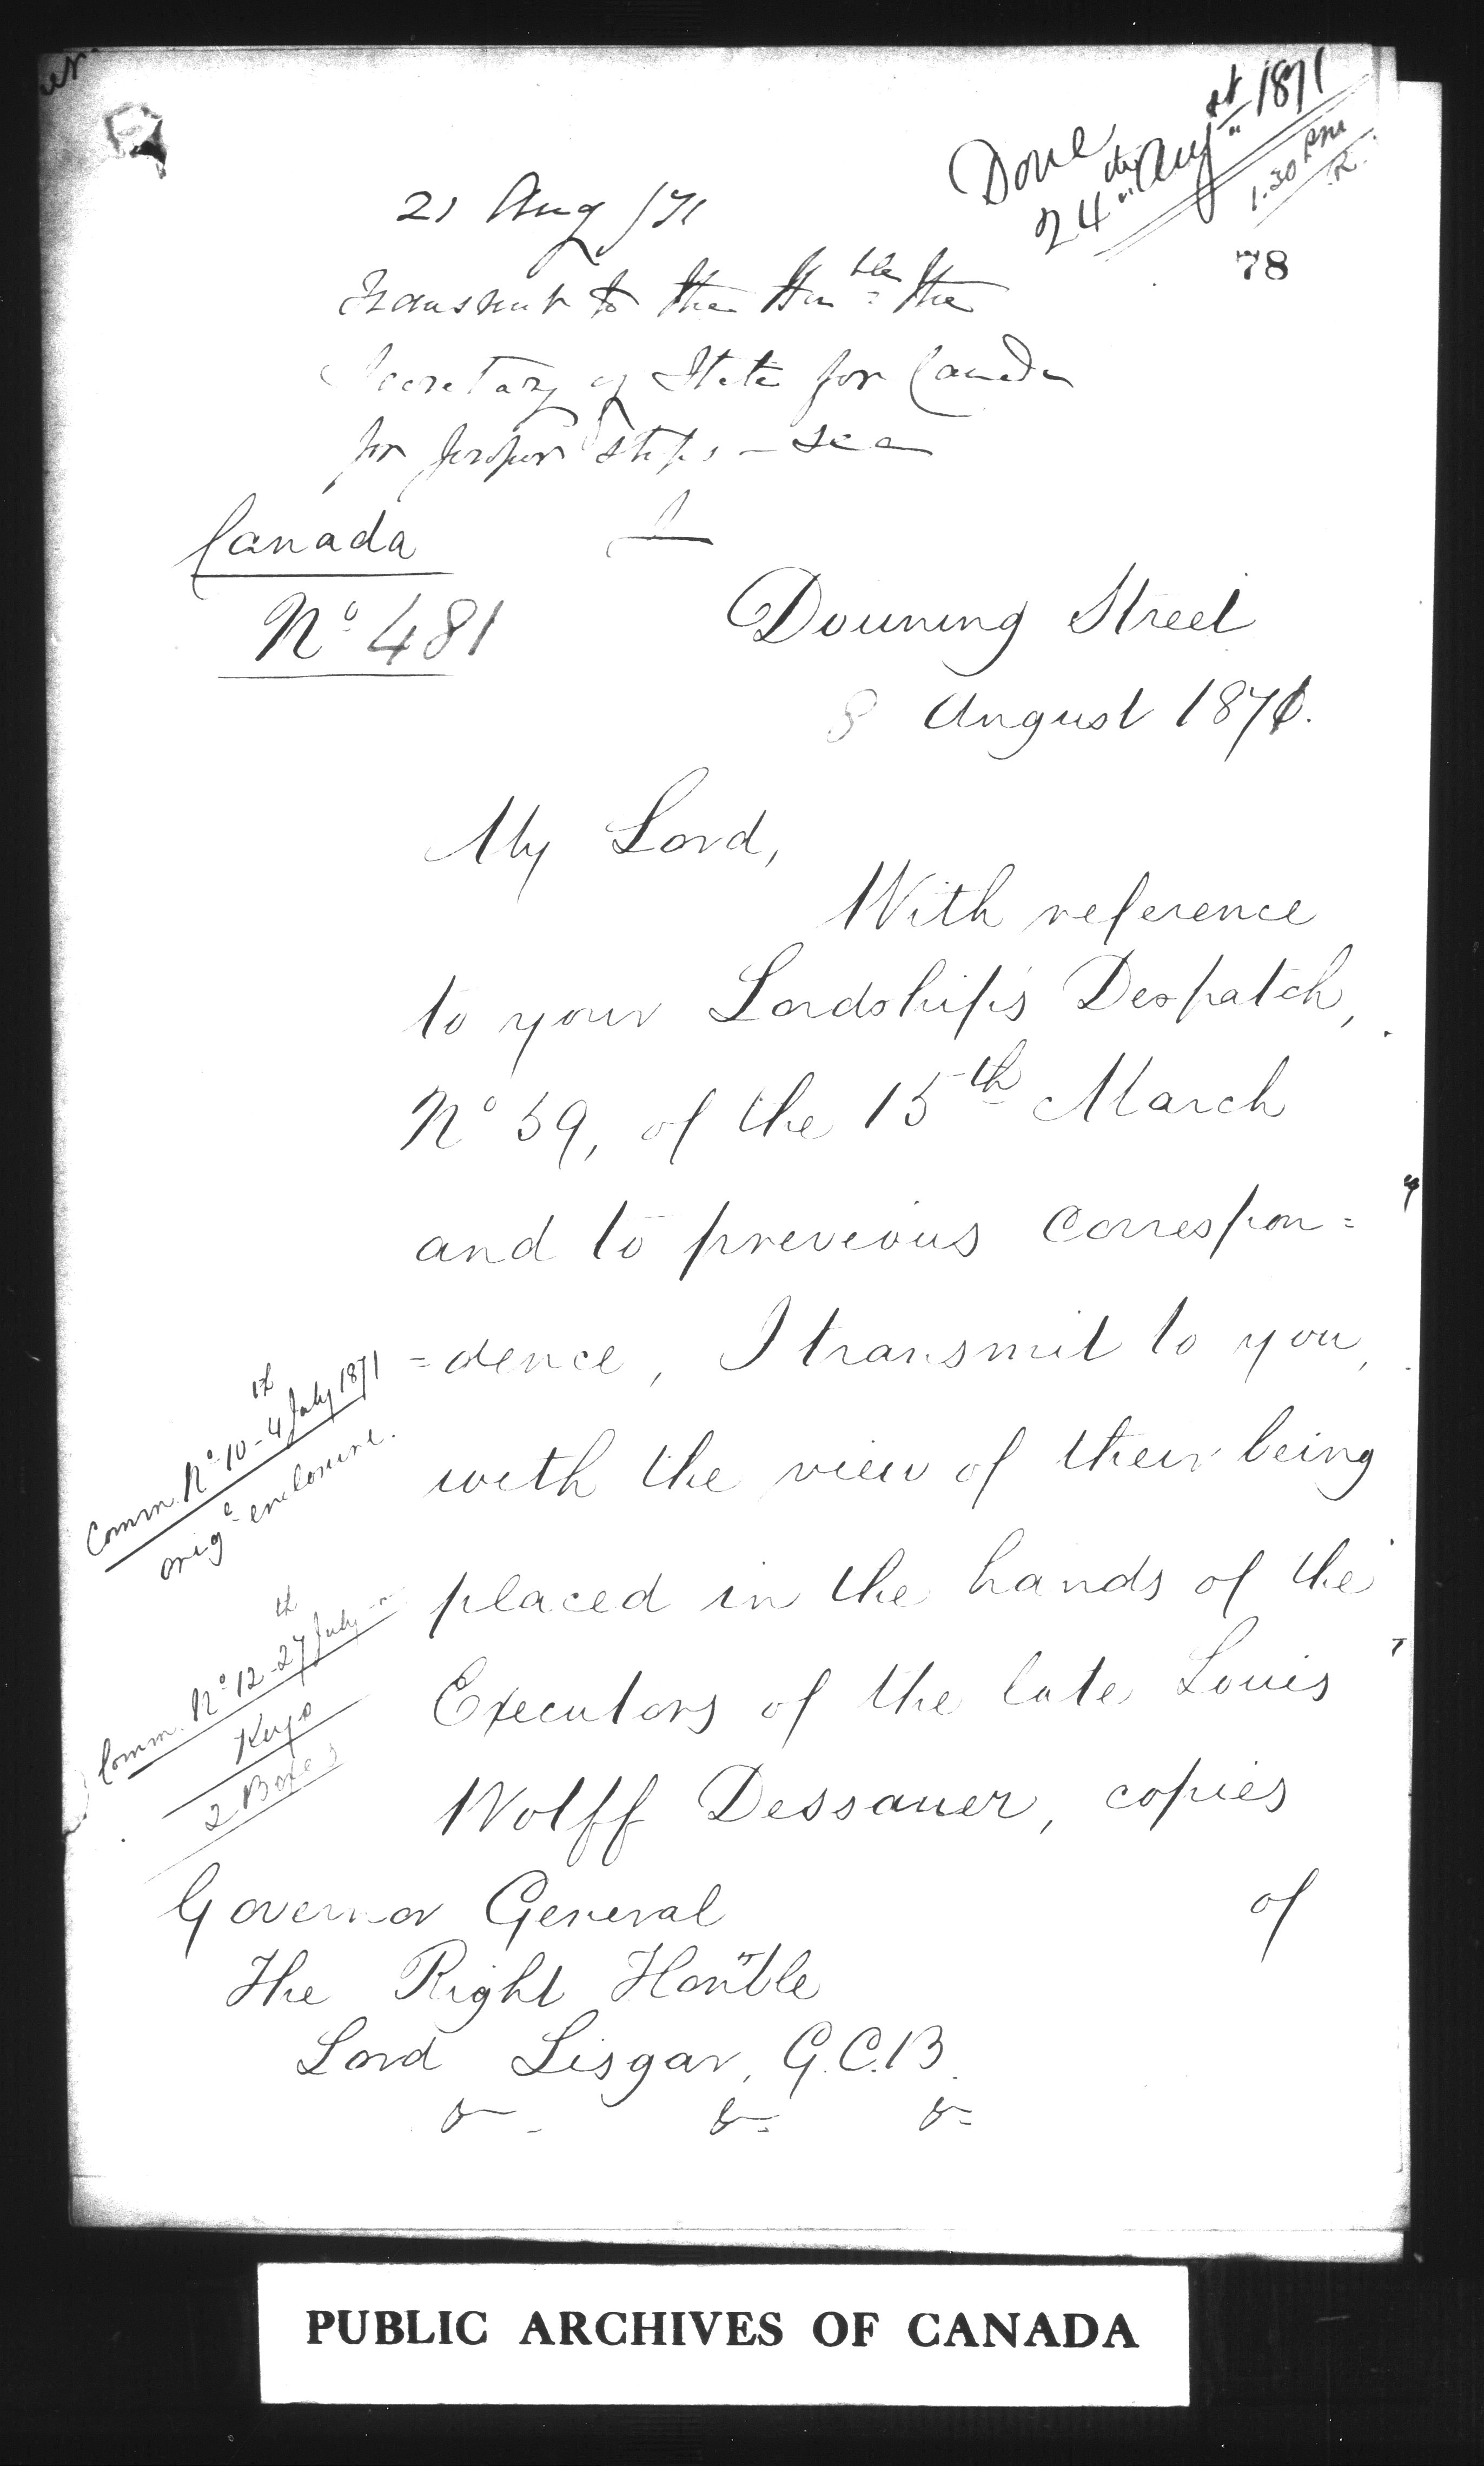 Done
24th Augst 1871
1.30 PM
R.
78
21 Aug /71
Transmit to the Honble the
Secretary of State for Canada
for proper steps –
L
Canada
No 481
Downing Street
8 August 1871.
My Lord,
With reference
to your Lordship's Despatch,
No 59, of the 15th March
and to previous correspon=
=dence, I transmit to you,
with the view of their being
placed in the hands of the
Executors of the late Louis
Wolff Dessauer, copies
of
Comm. No 10 - 4th July 1871
orige enclosure.
Comm. No 12 - 27th July "
Keys
2 Boxes
Governor General
The Right Honble
Lord Lisgar, G.C.B.
&c. &c. &c.
PUBLIC ARCHIVES OF CANADA